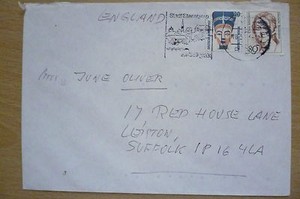 ENGLAND
80
Mrs. JUNE OLIVER
17 RED HOUSE LANE
LEISTON,
SUFFOLK IP16 4LA